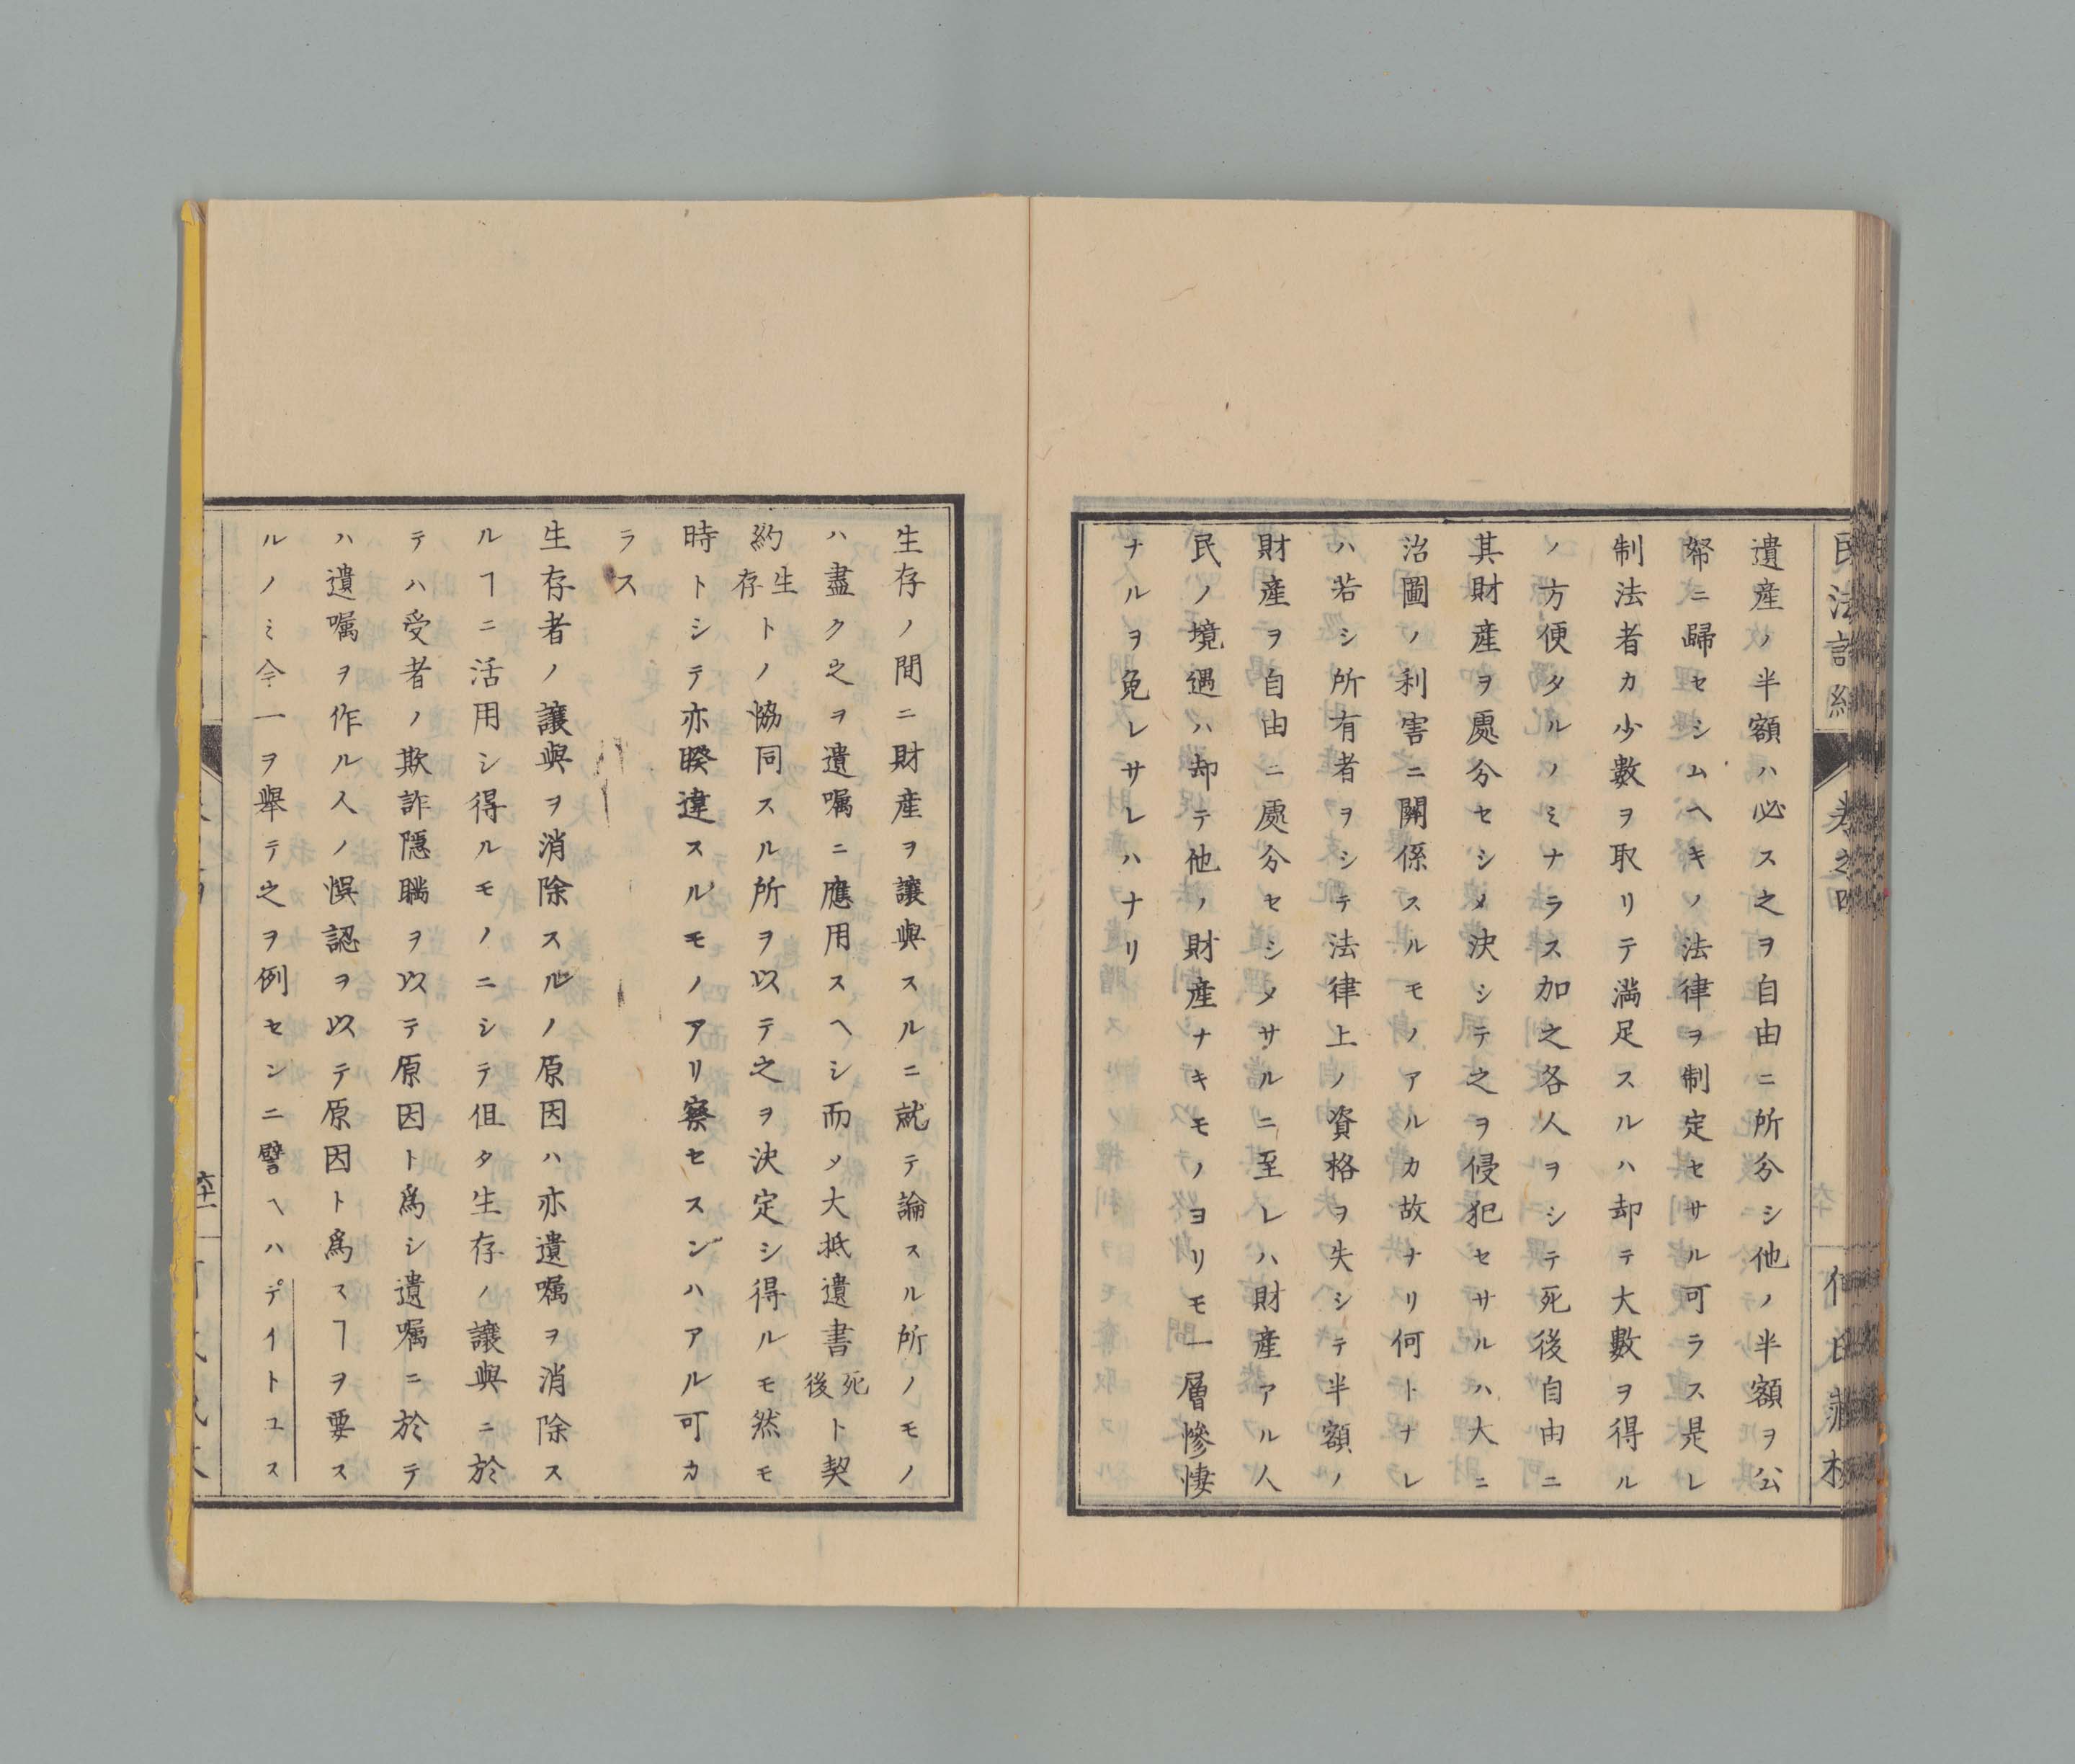 遺産ノ半額ハ必ス之ヲ自由ニ所分シ他ノ半額ヲ公
帑ニ歸セシムヘキノ法律ヲ制定セサル可ラス是レ
制法者カ少數ヲ取リテ満足スルハ却テ大數ヲ得ル
ノ方便タルノミナラス加之各人ヲシテ死後自由ニ
其財産ヲ處分セシメ决シテ之ヲ侵犯セサルハ大ニ
治圖ノ利害ニ關係スルモノアルカ故ナリ何トナレ
ハ若シ所有者ヲシテ法律上ノ資格ヲ失シテ半額ノ
財産ヲ自由ニ處分セシメサルニ至レハ財産アル人
民ノ境遇ハ却テ他ノ財産ナキモノヨリモ一層慘悽
ナルヲ免レサレハナリ
生存ノ間ニ財産ヲ讓與スルニ就テ論スル所ノモノ
ハ盡ク之ヲ遺囑ニ應用スヘシ而〆大抵遺書死後ト契
約生存トノ恊同スル所ヲ以テ之ヲ决定シ得ルモ然モ
時トシテ亦睽違スルモノアリ察セスンハアル可カ
ラス
生存者ノ讓與ヲ消除スルノ原因ハ亦遺囑ヲ消除ス
ルヿニ活用シ得ルモノニシテ但タ生存ノ讓與ニ於
テハ受者ノ欺詐隱瞞ヲ以テ原因ト爲シ遺囑ニ於テ
ハ遺囑ヲ作ル人ノ悞認ヲ以テ原因ト爲スヿヲ要ス
ルノミ今一ヲ擧テ之ヲ例センニ譬ヘハデイトユス